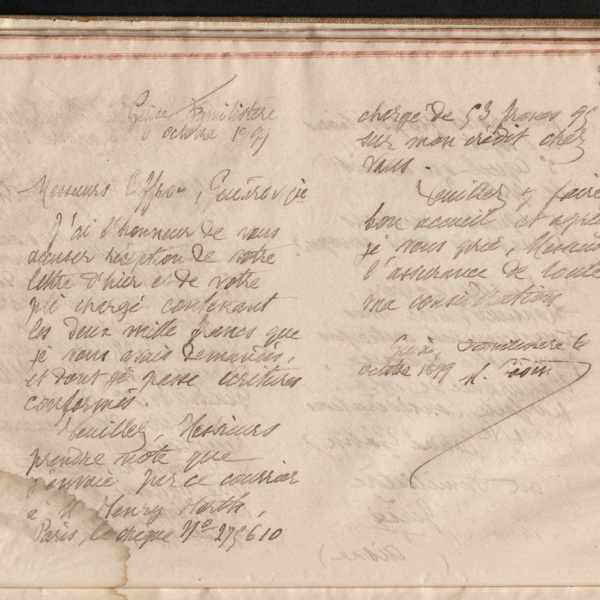 Guise Familistère
6 octobre 1879
Messieurs Offroy, Guiard & Cie
J'ai l'honneur de vous
accuser réception de votre
lettre d'hier & de votre
pli chargé contenant
les deux mille francs que
je vous avais demandés,
et dont je passe écritures
conformes.
Veuillez, Messieurs
prendre note que
j'envoie par ce courrier
à M Henry
Paris, le chèque N°
chargé de 53 francs 95
sur mon crédit chez
vous.
Veuillez y faire
bon accueil et agréer
je vous prie, Messieurs
l'assurance de toute
ma considération
Guise, Familistère 6
octobre 1879